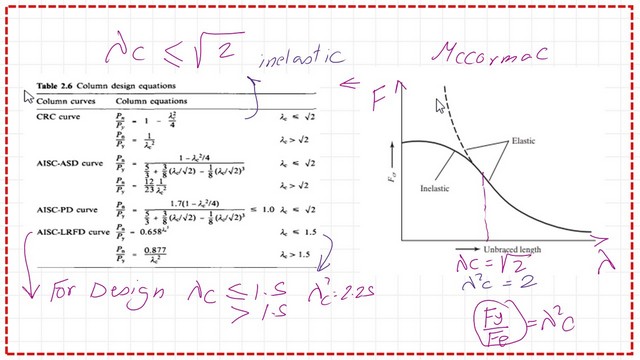 λc ≤ √2 inelastic
Mccormac
Table 2.6 Column design equations
Column curves Column equations
CRC curve Pn/Py = 1 − λc²/4 λc ≤ √2
Pn/Py = 1/λc² λc > √2
AISC-ASD curve Pn/Py = (1 − λc²/4) / (5/3 + 3/8 (λc/√2) − 1/8 (λc/√2)³) λc ≤ √2
Pn/Py = 12/23 1/λc² λc > √2
AISC-PD curve Pn/Py = 1.7(1 − λc²/4) / (5/3 + 3/8 (λc/√2) − 1/8 (λc/√2)³) ≤ 1.0 λc ≤ √2
AISC-LRFD curve Pn/Py = 0.658^λc² λc ≤ 1.5
Pn/Py = 0.877/λc² λc > 1.5
F
Elastic
Inelastic
Fcr
Unbraced length
λ
λc = √2
λ²c = 2
Fy/Fe = λ²c
For Design λc ≤ 1.5 λ²c = 2.25
> 1.5